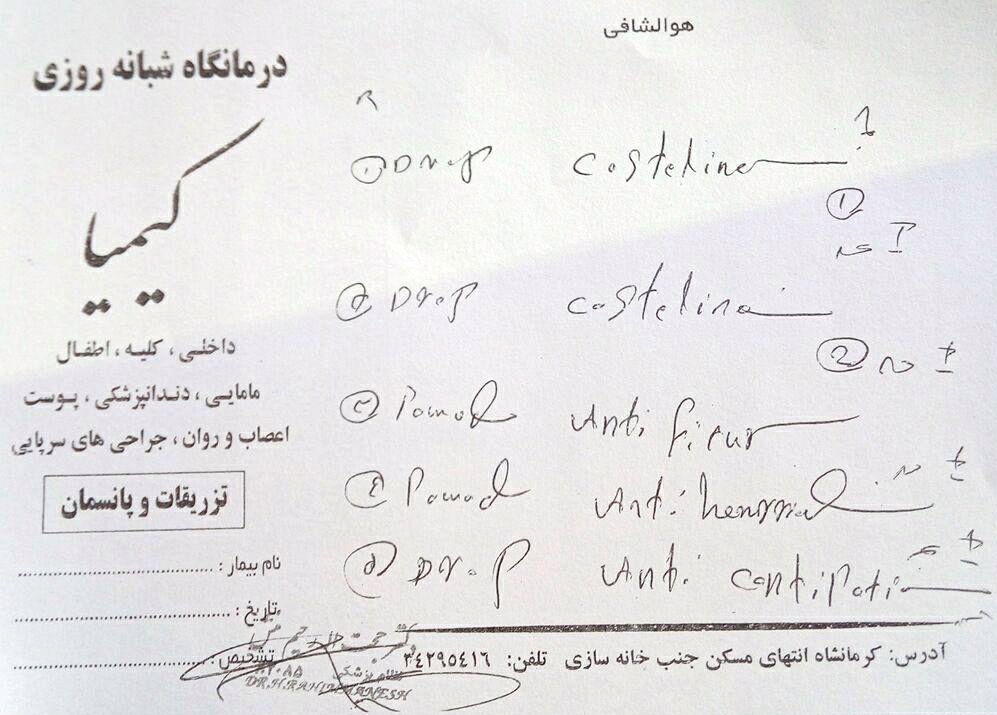 هوالشافی
درمانگاه شبانه روزی
کیمیا
داخلی ، کلیه ، اطفال
مامایی ، دندانپزشکی ، پوست
اعصاب و روان ، جراحی های سرپایی
تزریقات و پانسمان
نام بیمار :
تاریخ :
تشخیص :
① Drop Costeline
①
② Drop Costelina
②
③ Pomad Anti ficur
④ Pomad Anti hemrrud
⑤ Drop Anti Contipatio
آدرس: کرمانشاه انتهای مسکن جنب خانه سازی تلفن: ۳٤۲۹٥٤۱٦
نظام پزشکی
DR.H.RAHIMMANESH